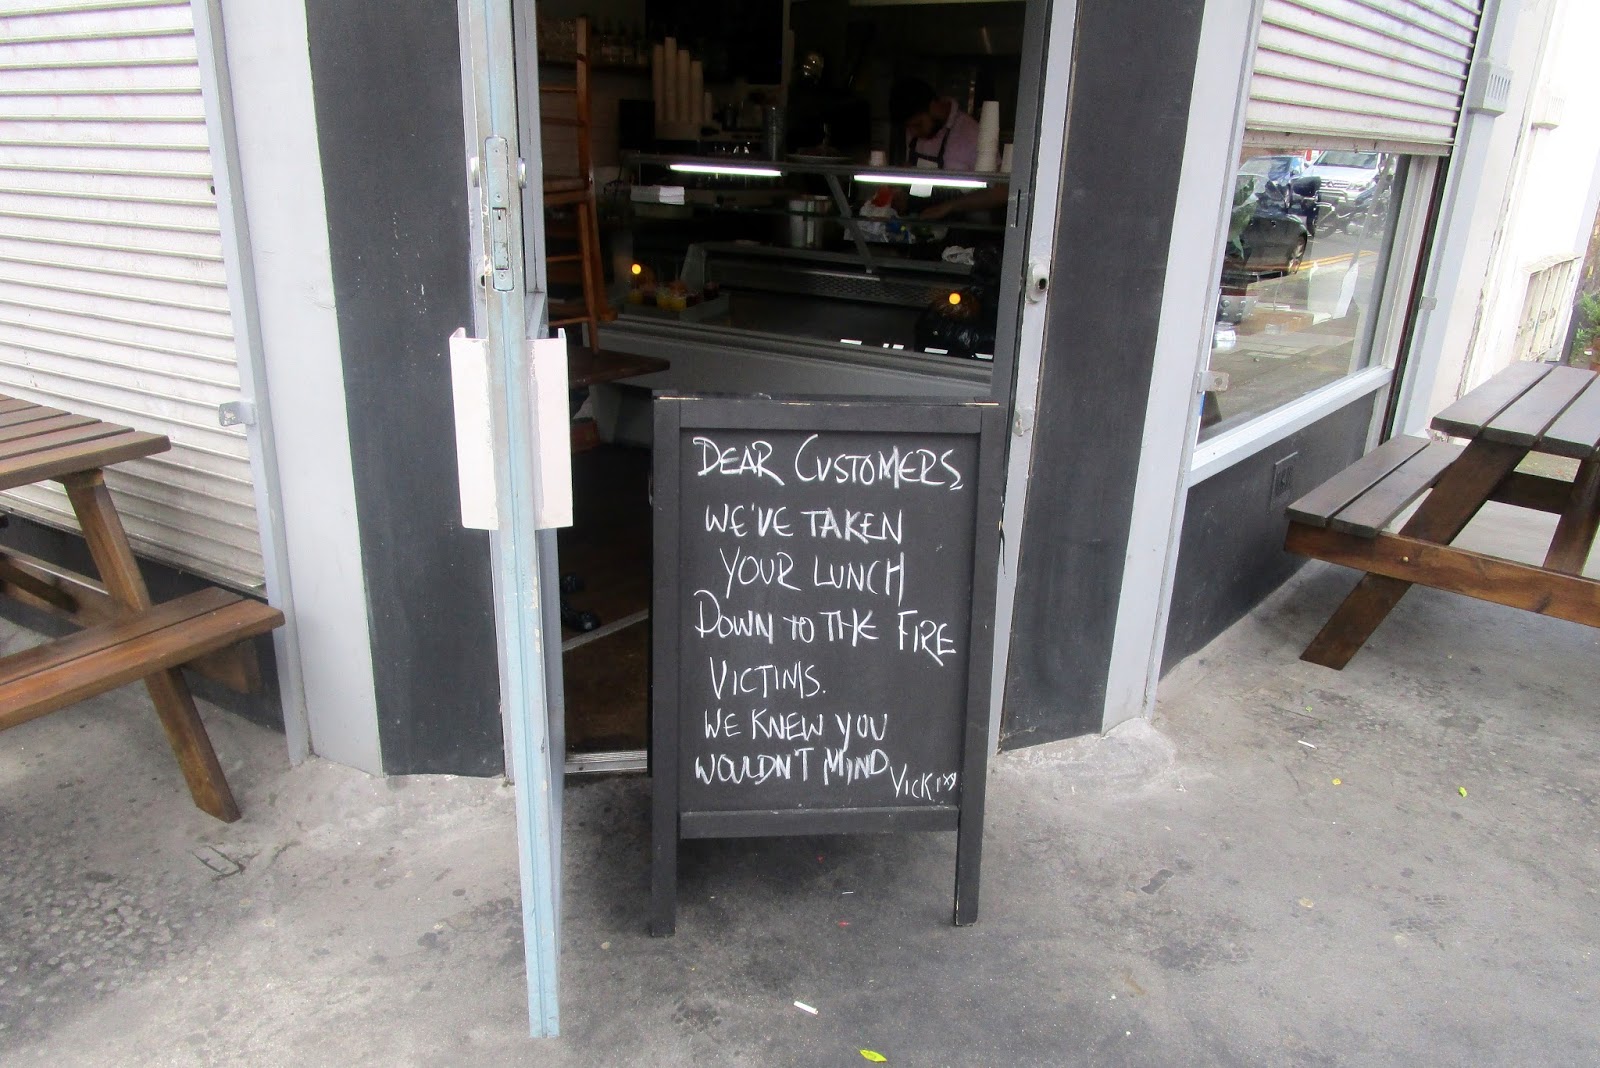 DEAR CUSTOMERS,
WE'VE TAKEN
YOUR LUNCH
DOWN TO THE FIRE
VICTIMS.
WE KNEW YOU
WOULDN'T MIND
VICKI xx